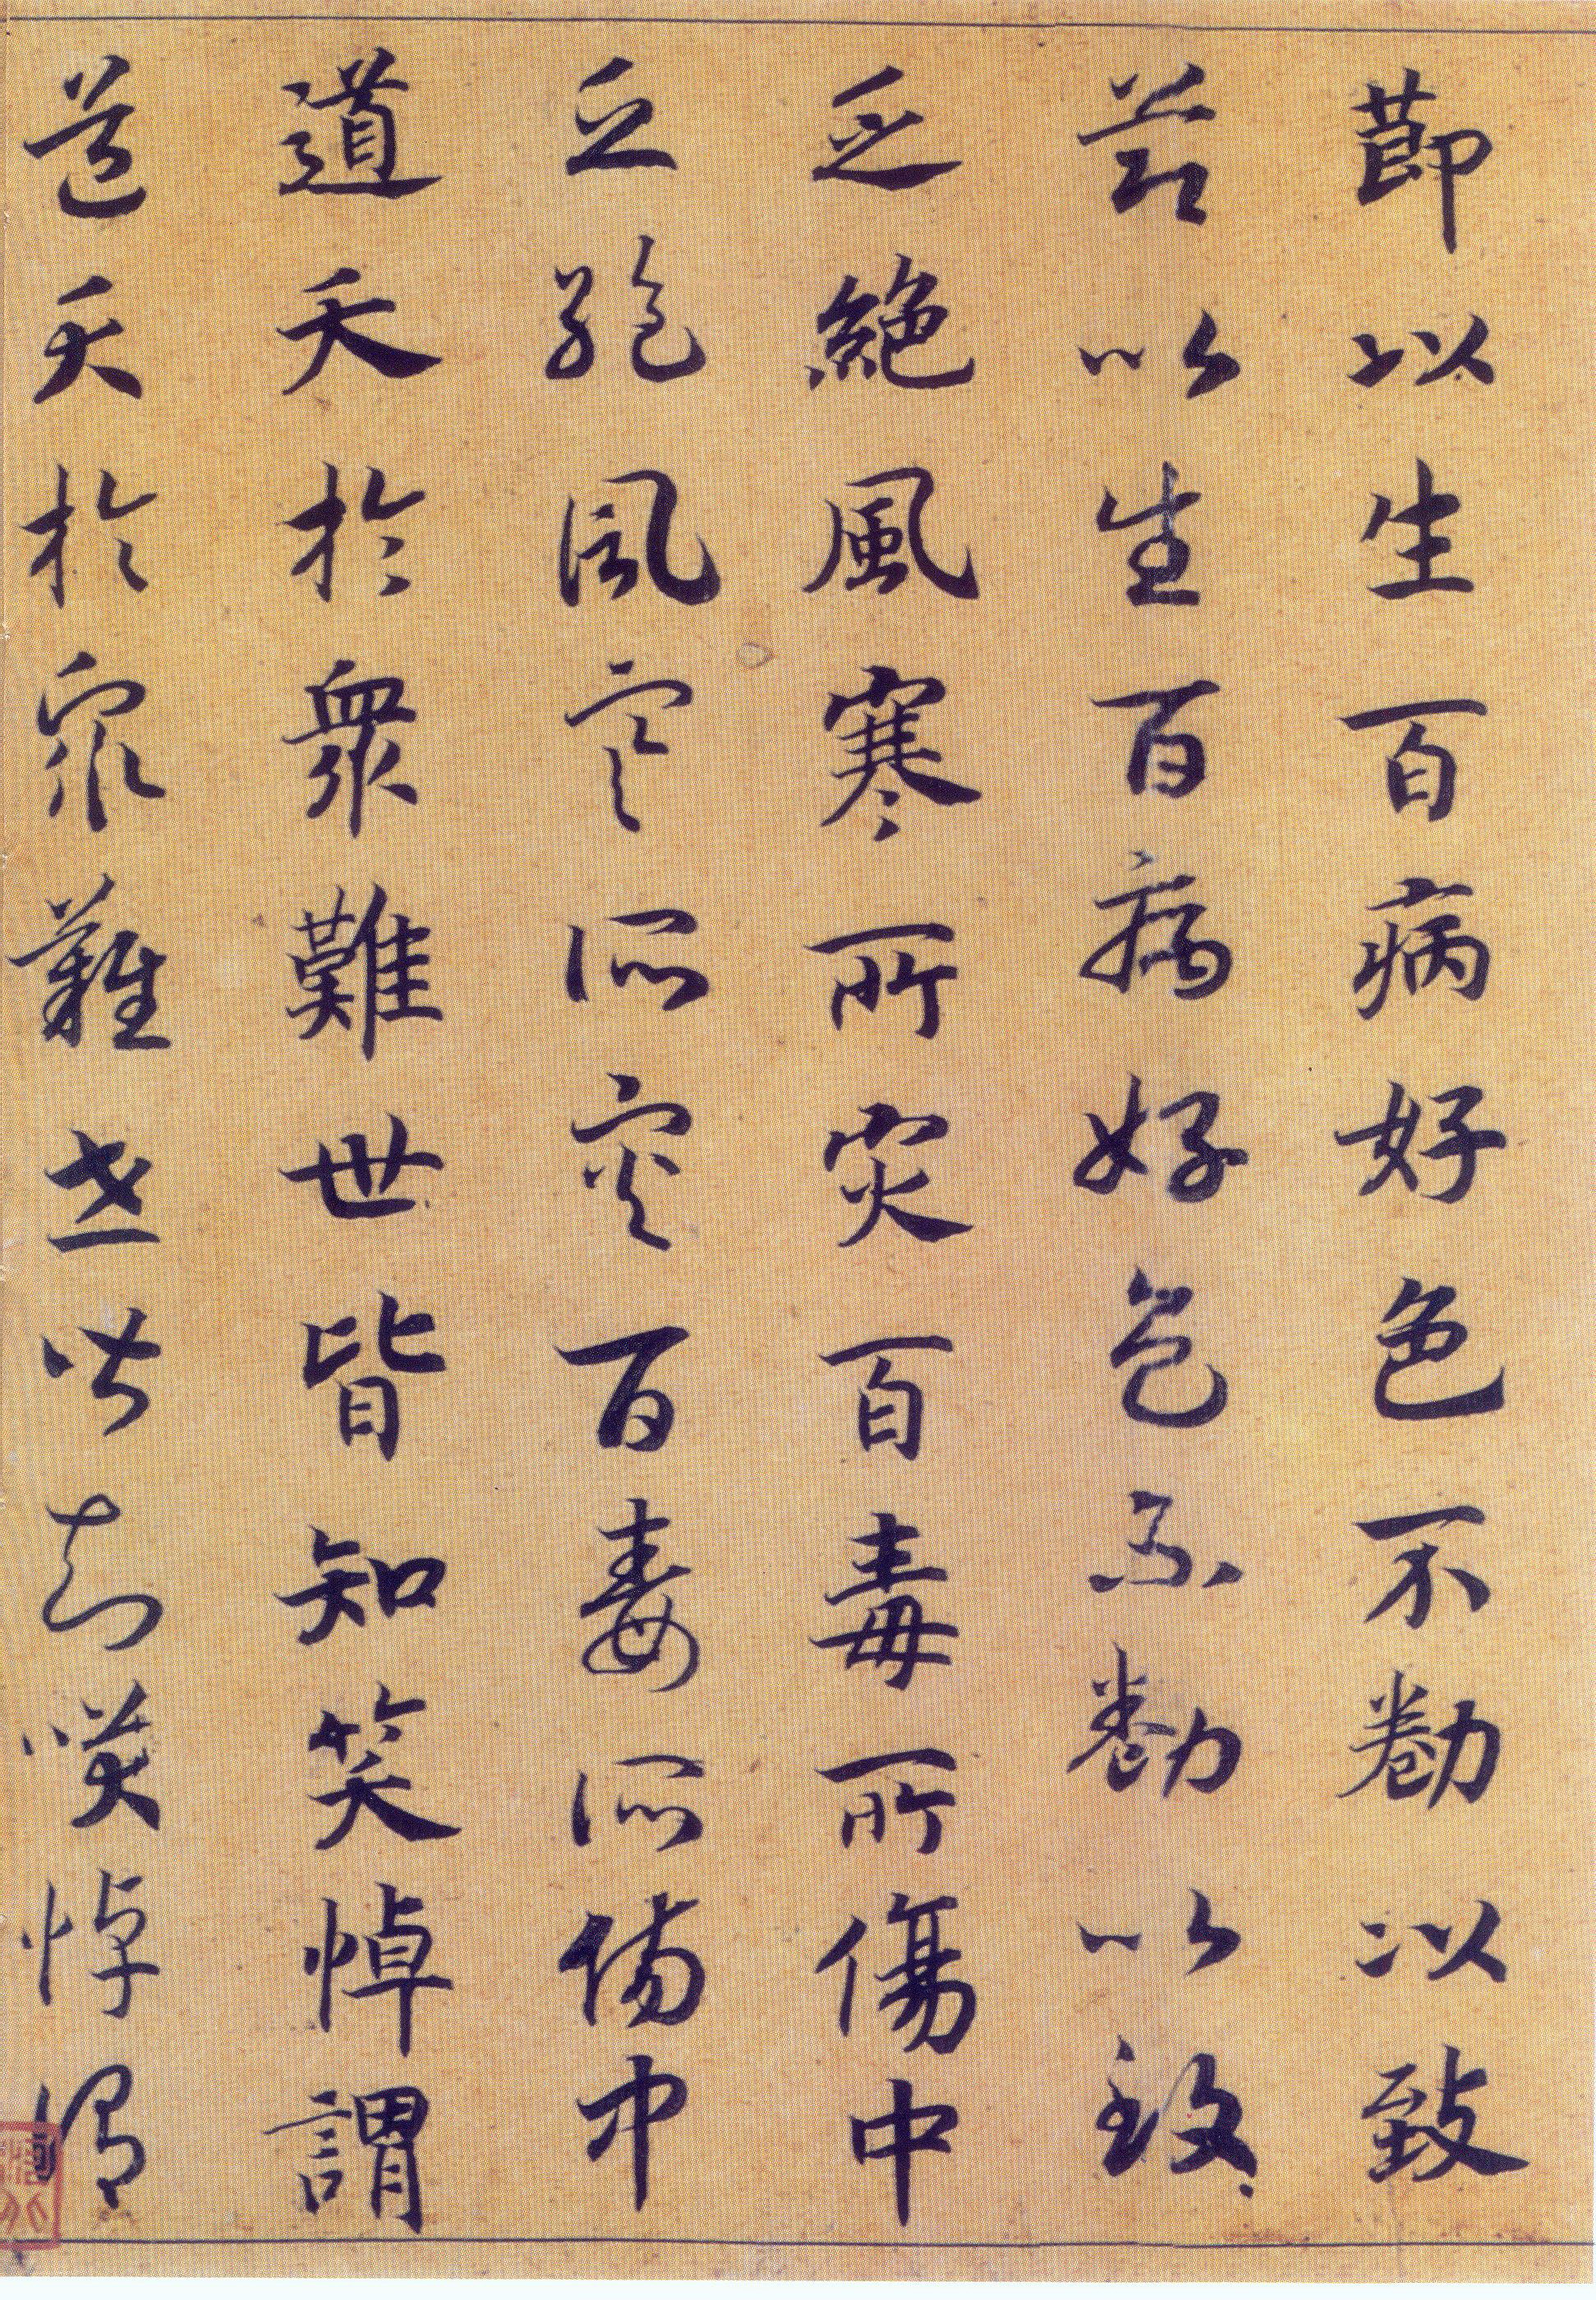 節以生百病好色不勌以致
節以生百病好色不勌以致
乏絕風寒所災百毒所傷中
乏絕風寒所災百毒所傷中
道夭於衆難世皆知笑悼謂
道夭於衆難世皆知笑悼謂